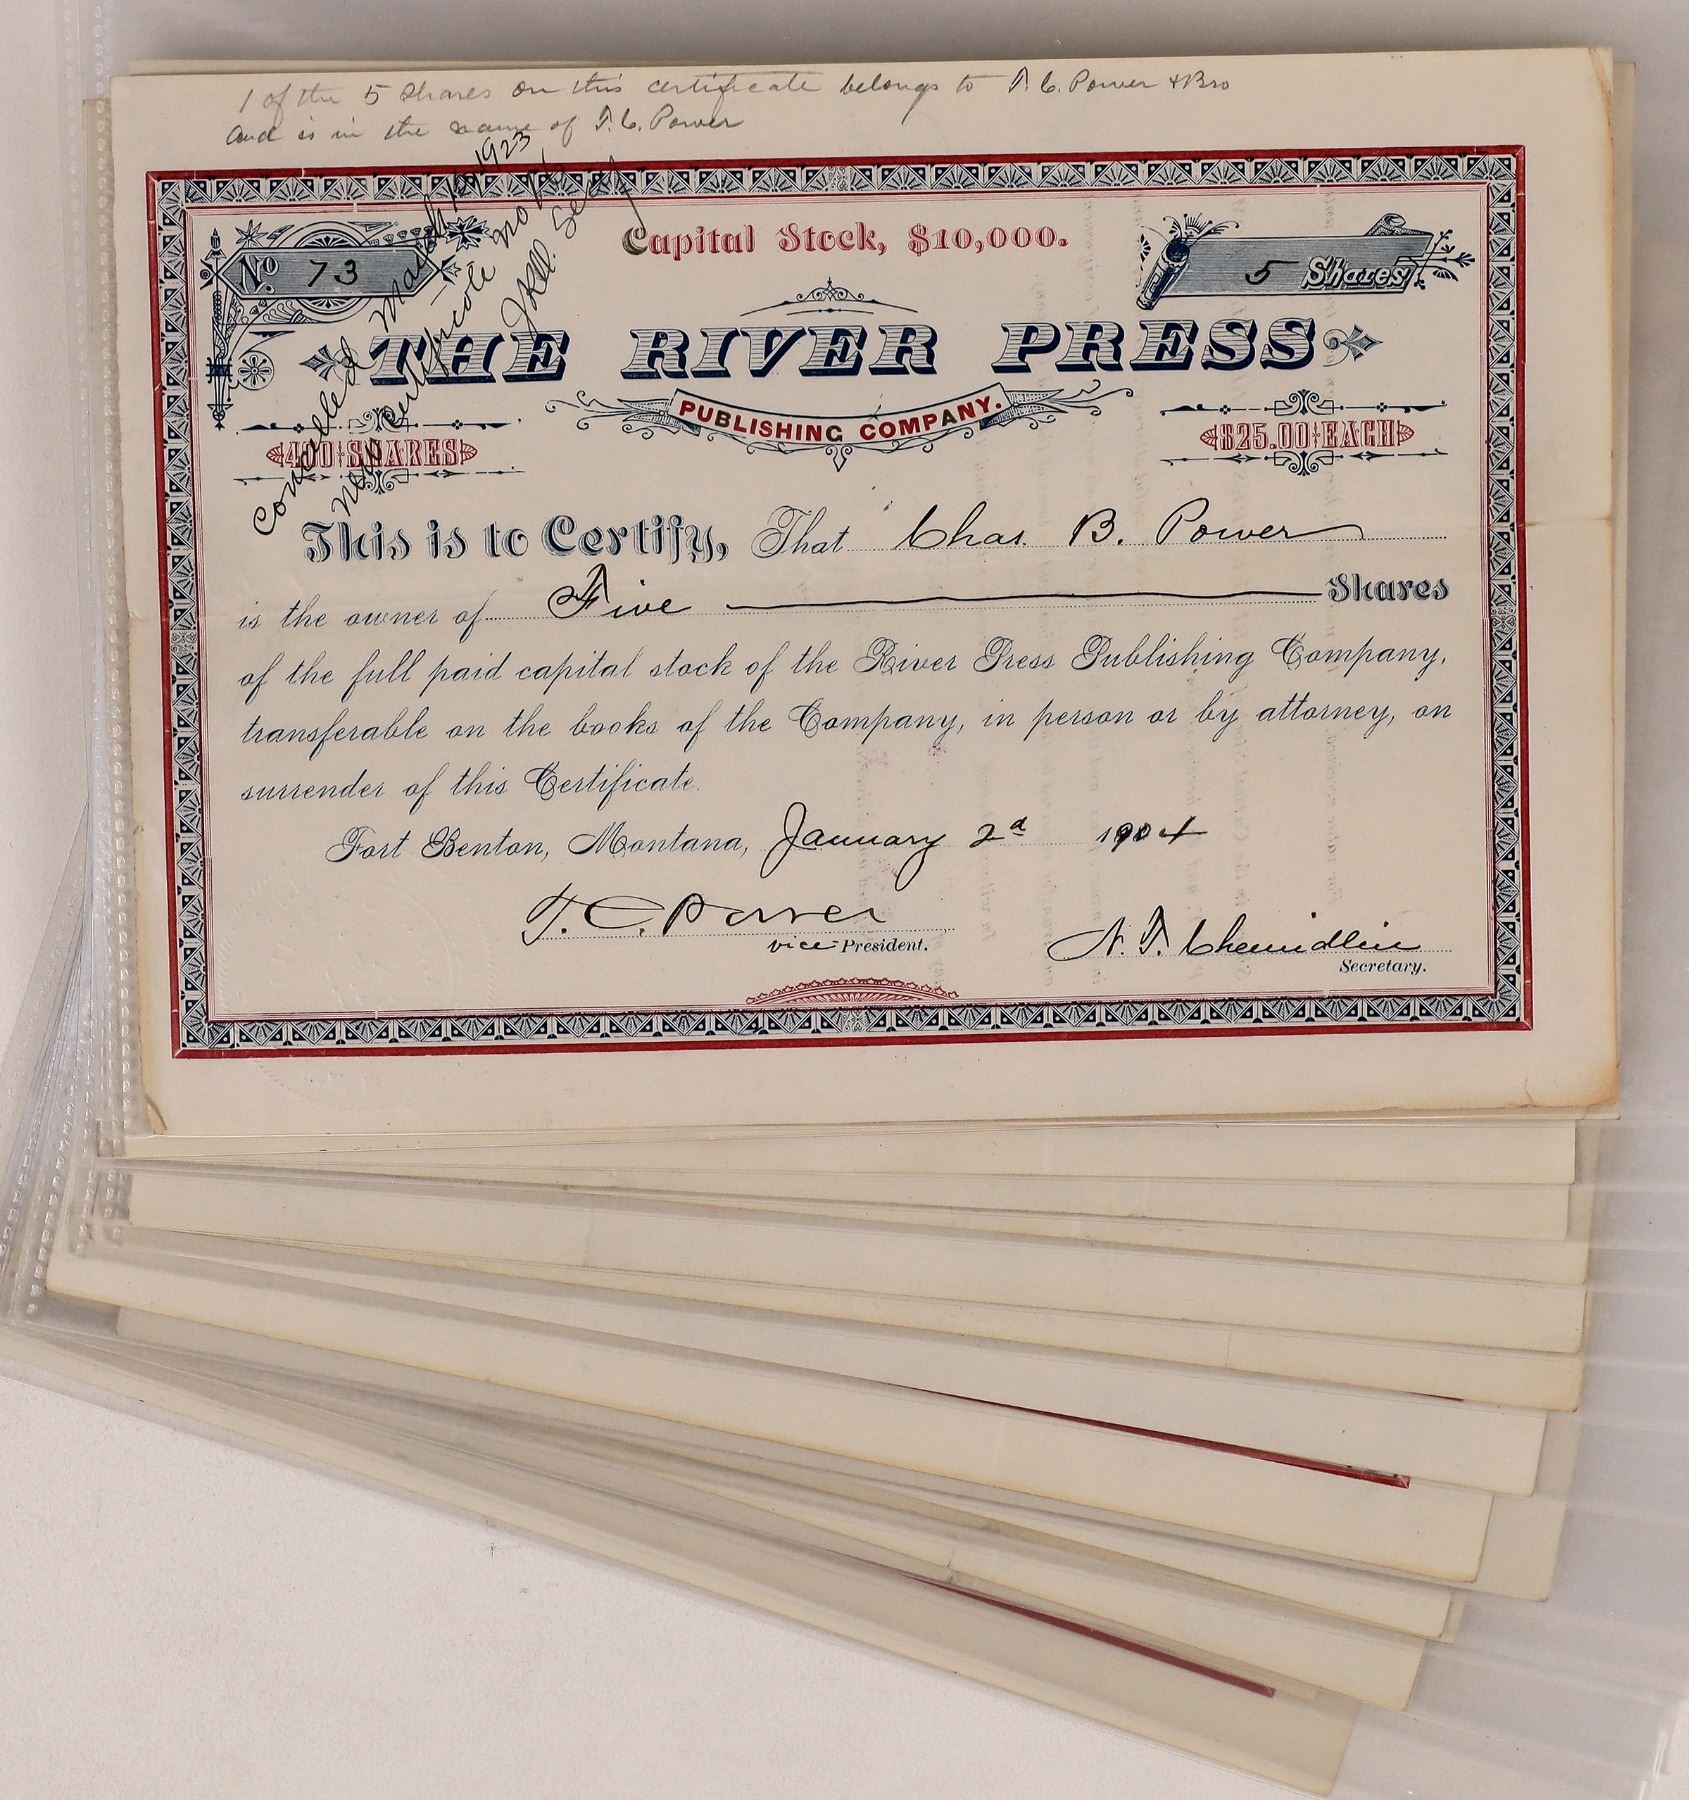 1 of the 5 shares on this certificate belongs to T. C. Power & Bro
and is in the name of T. C. Power
Cancelled March 1923
New Certificate No
Secy
Capital Stock, $10,000.
No. 73
5 Shares
THE RIVER PRESS
PUBLISHING COMPANY.
400 SHARES
$25.00 EACH
This is to Certify, That Chas. B. Power
is the owner of Five Shares
of the full paid capital stock of the River Press Publishing Company,
transferable on the books of the Company, in person or by attorney, on
surrender of this Certificate.
Fort Benton, Montana, January 2d 1904
T. C. Power
vice President.
A. F. Chemidlin
Secretary.